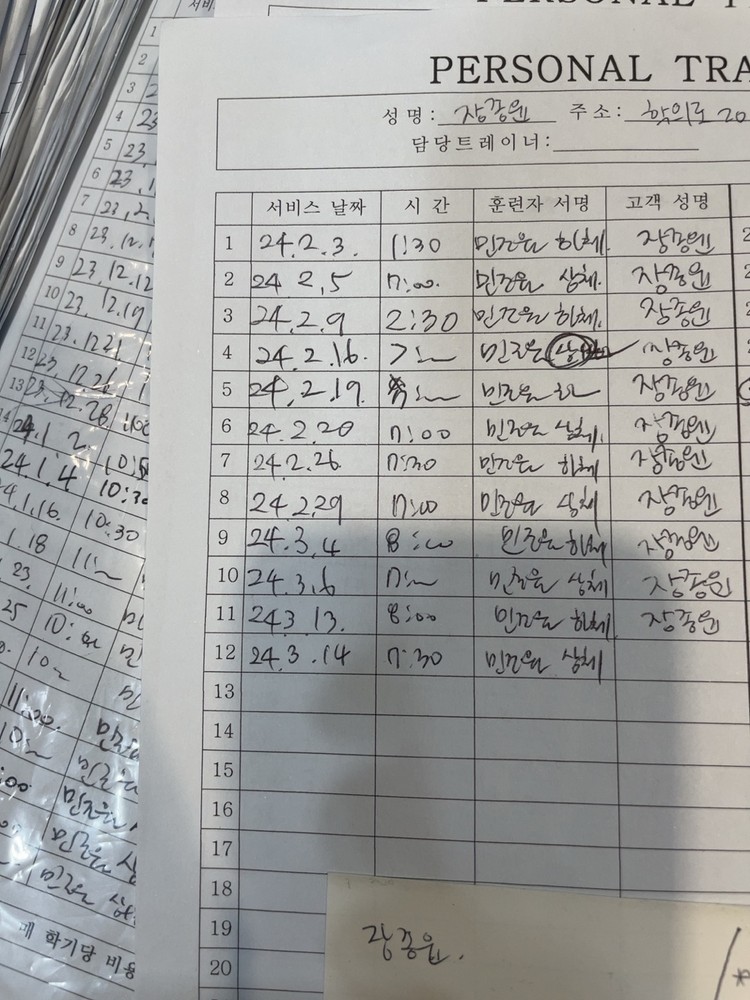 PERSONAL TRA
성 명 : 장종원 주 소 : 학의로 20
담당트레이너 :
서비스 날짜 시 간 훈련자 서명 고객 성명
1 24.2.3. 1:30 민조은 하체. 장종원
2 24 2.5 7:00. 민조은 상체. 장종원
3 24.2.9 2:30 민조은 하체. 장종원
4 24.2.16. 7:~ 민조은 장종원
5 24.2.19. 민조은 하 장종원
6 24.2.20 7:00 민조은 상체. 장종원
7 24.2.26 7:30 민조은 하체 장종원
8 24.2.29 7:00 민조은 상체 장종원
9 24.3.4 8:00 민조은 하체 장종원
10 24.3.6 7:~ 민조은 상체 장종원
11 24.3 13. 8:00 민조은 하체 장종원
12 24.3.14 7:30 민조은 상체
13
14
15
16
17
18
19
20
장종원.
1
2
3
4
5 23.
6 23.
7 23.2.
8 23.12.
9 23.12.12
10 23.12.19
11 23.12.21
12 23.12.26
13 23.12.28. 1:00
14 24.1 2
24.1.4 10:30
24.1.16. 10:30
1.18 11:~
23. 11:00
25 10:00 민
10~
11:00. 민조은
10~ 민조은
:00 민조은
민조은 상
민조은 상체
매 학기당 비용